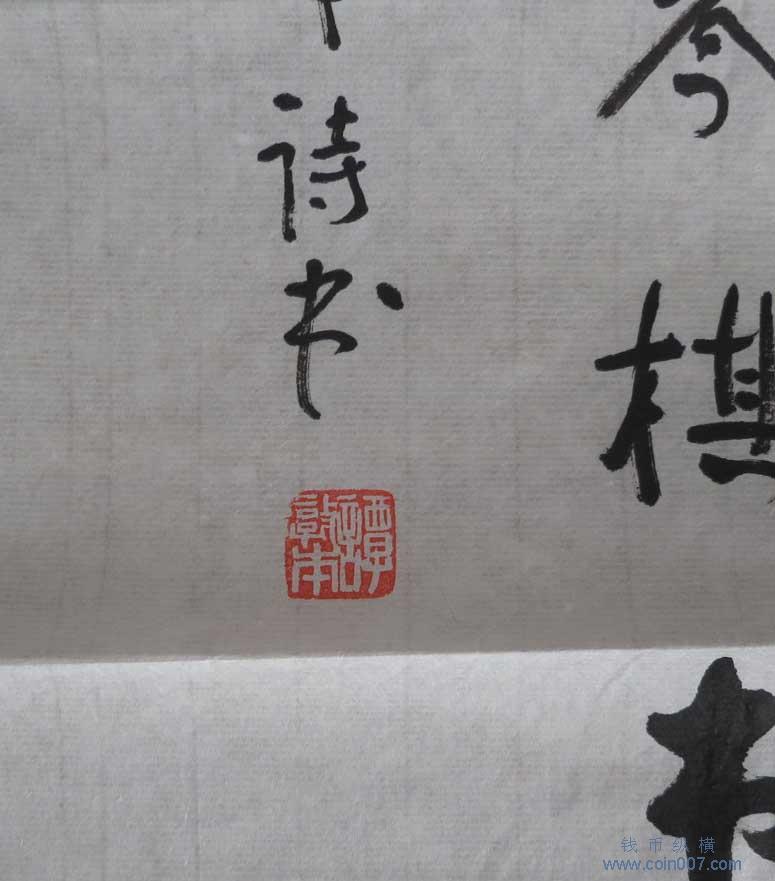 琴棋
诗书
钱币纵横
www.coin007.com